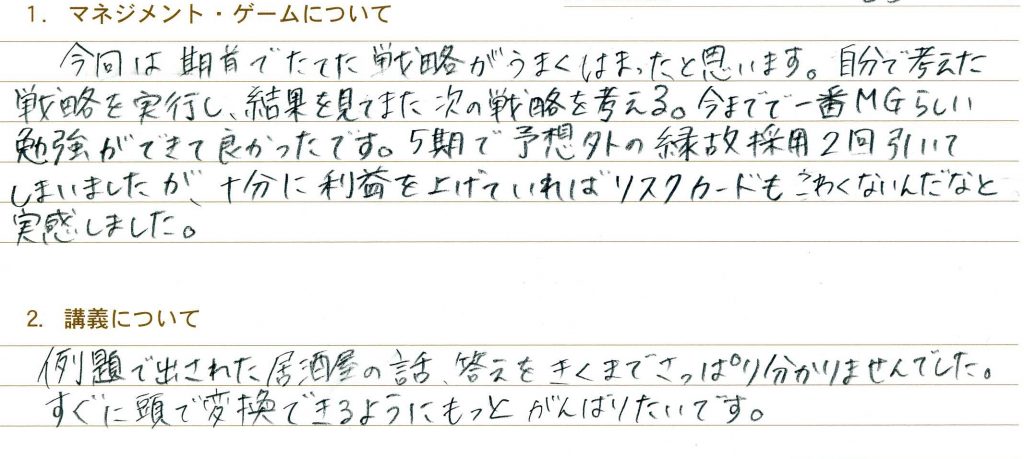 1. マネジメント・ゲームについて
今回は期首でたてた戦略がうまくはまったと思います。自分で考えた
戦略を実行し、結果を見てまた次の戦略を考える。今までで一番MGらしい
勉強ができて良かったです。5期で予想外の縁故採用2回引いて
しまいましたが、十分に利益を上げていればリスクカードもこわくないんだなと
実感しました。
2. 講義について
例題で出された居酒屋の話、答えをきくまでさっぱり分かりませんでした。
すぐに頭で変換できるようにもっとがんばりたいです。